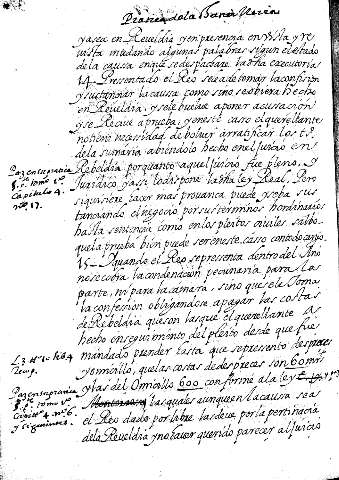 Practica de la Buena Vieria
ya sea en Reveldia, y en presencia en vista y re
vista mudando algunas palabras segun el estado
de la causa en que se despachare la dha executoria
14 Presentado el Reo se a de tomar la confision
y sustanciar la causa como sino se oviera hecho
en Reveldia, y se le buelve a poner acusacion
y se Recive a prueba, y en este caso el querellante
no tiene necesidad de bolver a rratificar los tos
de la sumaria abiendolo hecho en el juicio en
Rebeldia porquanto aquel juicio fue pleno, y
Juridico y assi lo dispone la dha ley Real. Pero
si quisiere hacer mas provança puede y se ba sus
tanciando el negocio por sus terminos hordinarios
hasta sentencia como en los pleitos civiles, salbo
que la prueba bien puede ser en este casso con todo cargo
15 Quando el Reo se presenta dentro del Año
no se cobra la condenacion pecuniaria para las
parte, ni para la camara, sino que se le toma
la confesion obligandose a pagar las costas
de Rebeldia que son las que el querellante a
hecho en seguimiento del pleito desde que fue
mandado prender hasta que se pressento
y omicillo, que las costas de despreces son 60 mrs
y las del Omicillo 600 conforme a la ley
las quales aunque en la causa se as
el Reo dado por libre las deve por la pertinacia
de la Reveldia y no haver querido parecer al juicio
Paz en su practica
5. p. tomo 1o
Capitulo 4.
no 17.
L 3 tt 10 lib 4
Recop.
Paz en su practica
5. p. tomo 1o
no 6.
y siguientes.